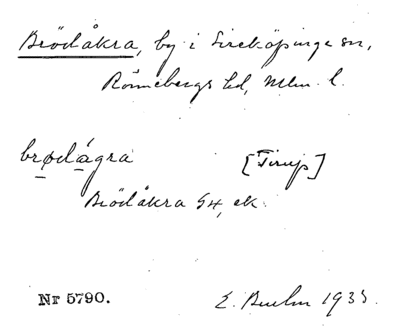 Brödåkra, by i Sireköpinge sn,
Rönnebergs hd, Mlm. l.
brødågra [Tirup]
Brödåkra GH, ek.
Nr 5790. E. 1935.